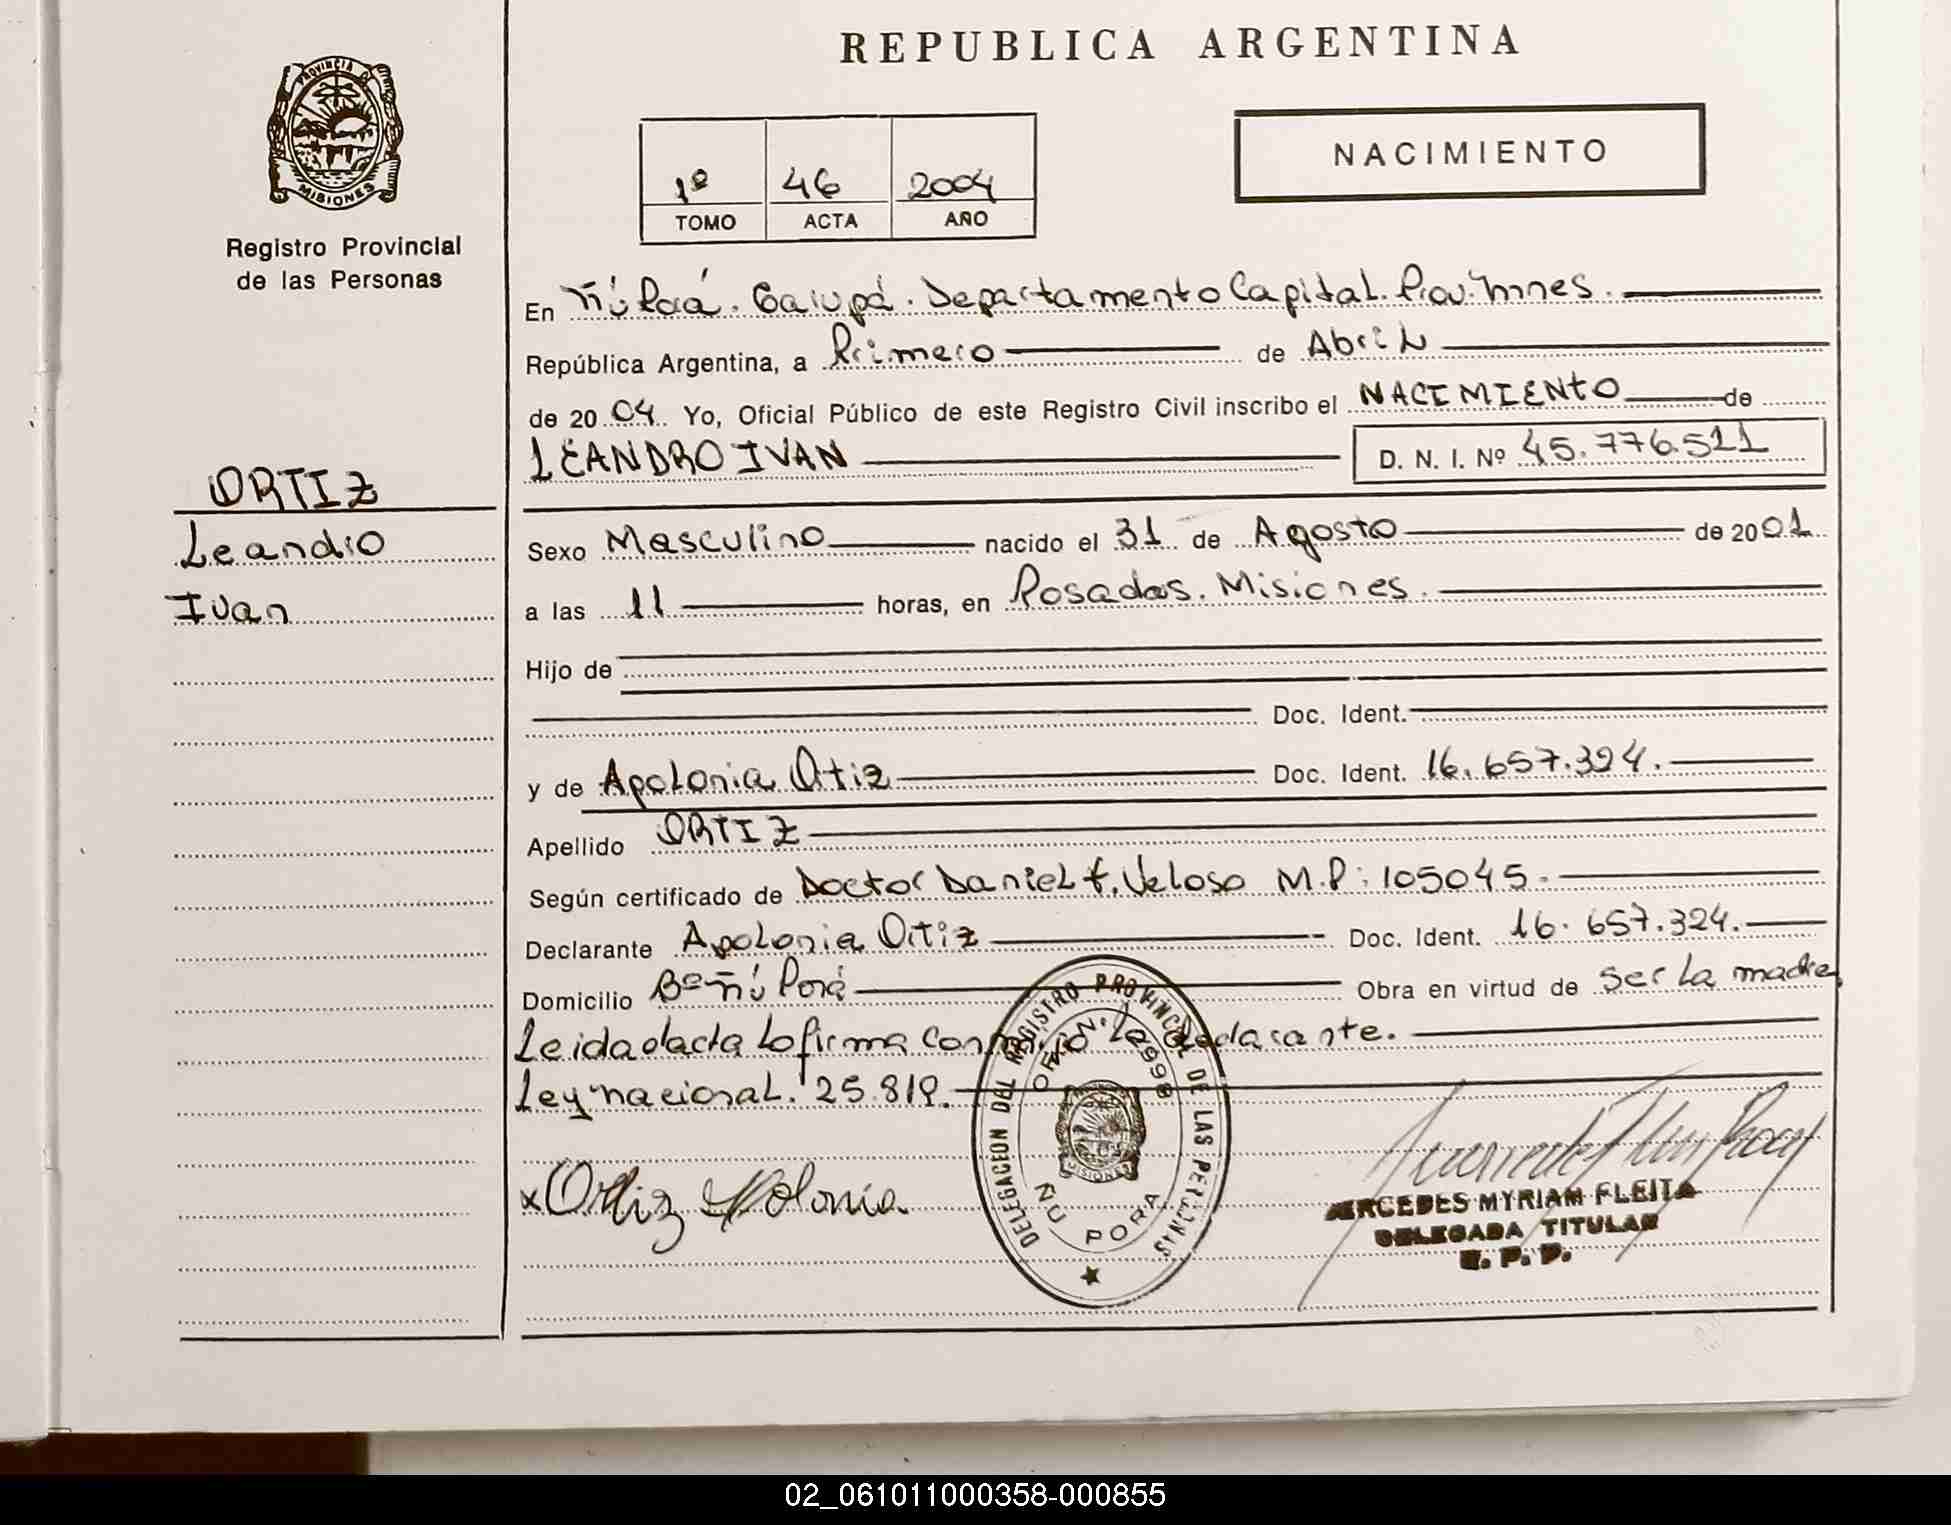 REPUBLICA ARGENTINA
PROVINCIA DE MISIONES
Registro Provincial
de las Personas
1º 46 2004
TOMO ACTA AÑO
NACIMIENTO
En Ñú Porá. Garupá. Departamento Capital. Prov. Mnes.
República Argentina, a Primero de Abril
de 2004 Yo, Oficial Público de este Registro Civil inscribo el NACIMIENTO de
LEANDRO IVAN D. N. I. Nº 45.776.511
ORTIZ
Leandro
Ivan
Sexo Masculino nacido el 31 de Agosto de 2001
a las 11 horas, en Posadas. Misiones.
Hijo de
Doc. Ident.
y de Apolonia Ortiz Doc. Ident. 16.657.324.
Apellido ORTIZ
Según certificado de Doctor Daniel F. Veloso M.P: 105045.
Declarante Apolonia Ortiz Doc. Ident. 16.657.324.
Domicilio Bº Ñú Porá Obra en virtud de ser la madre
Leida el acta la firma conmigo la declarante.
Ley nacional. 25.819.
DELEGACION DEL REGISTRO PROVINCIAL DE LAS PERSONAS
ÑU PORA
x Ortiz Apolonia
MERCEDES MYRIAM FLEITA
DELEGADA TITULAR
R. P. P.
02_061011000358-000855